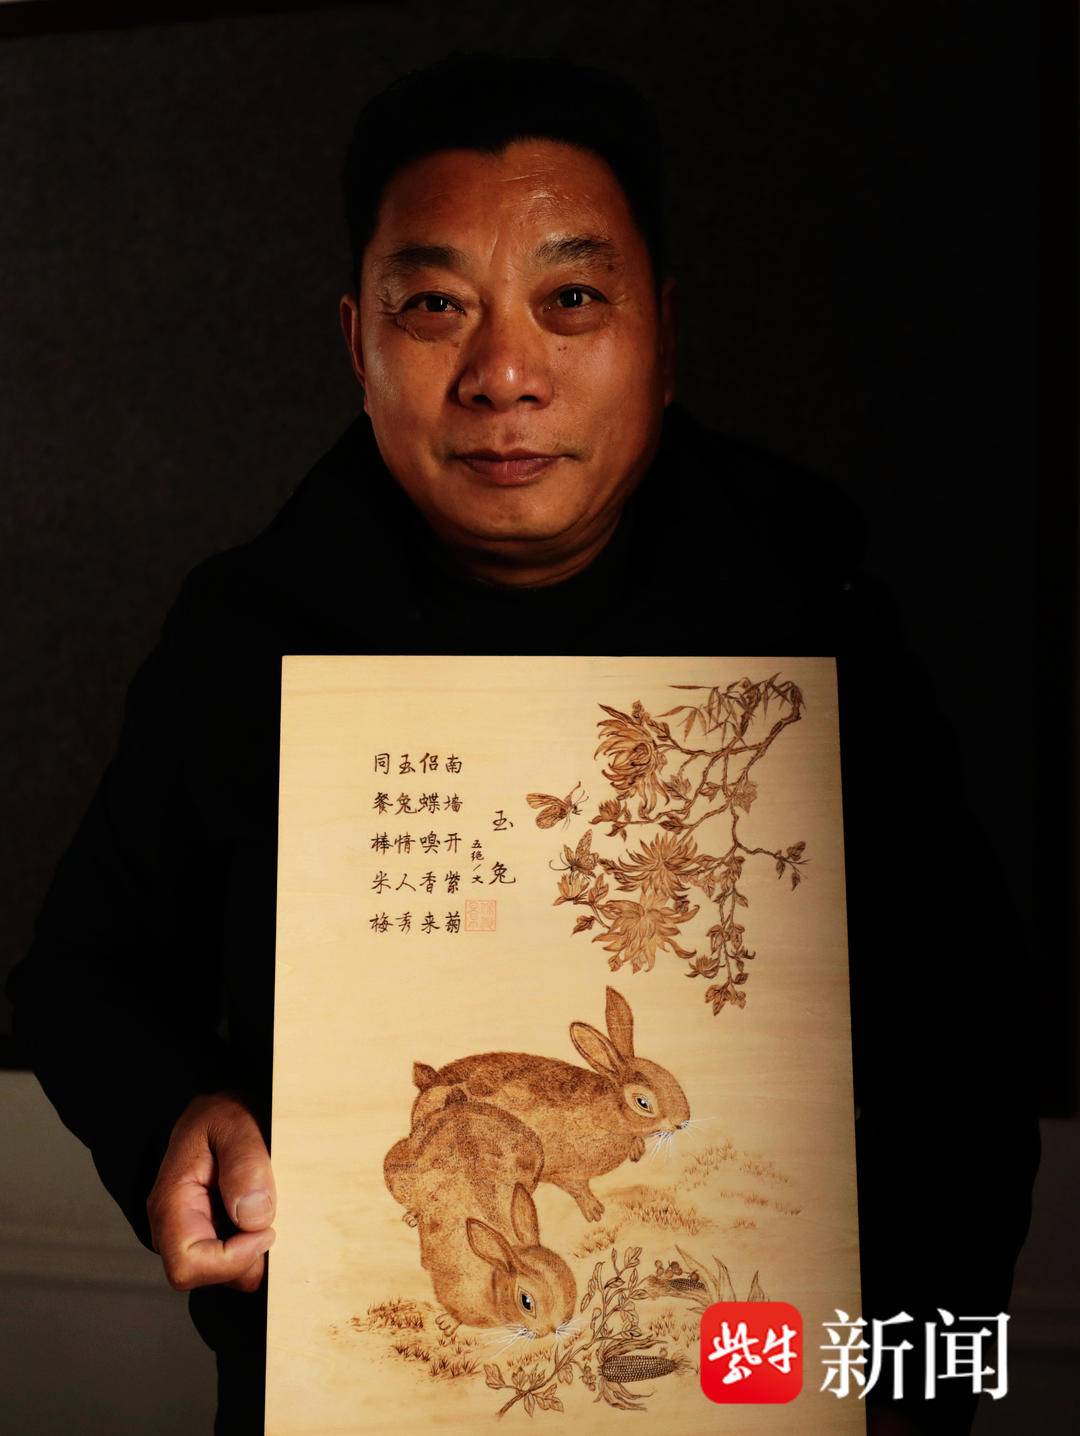 玉兔
五绝/文
南墙开紫菊
侣蝶嗅香来
玉兔情人秀
同餐棒米梅
紫牛新闻